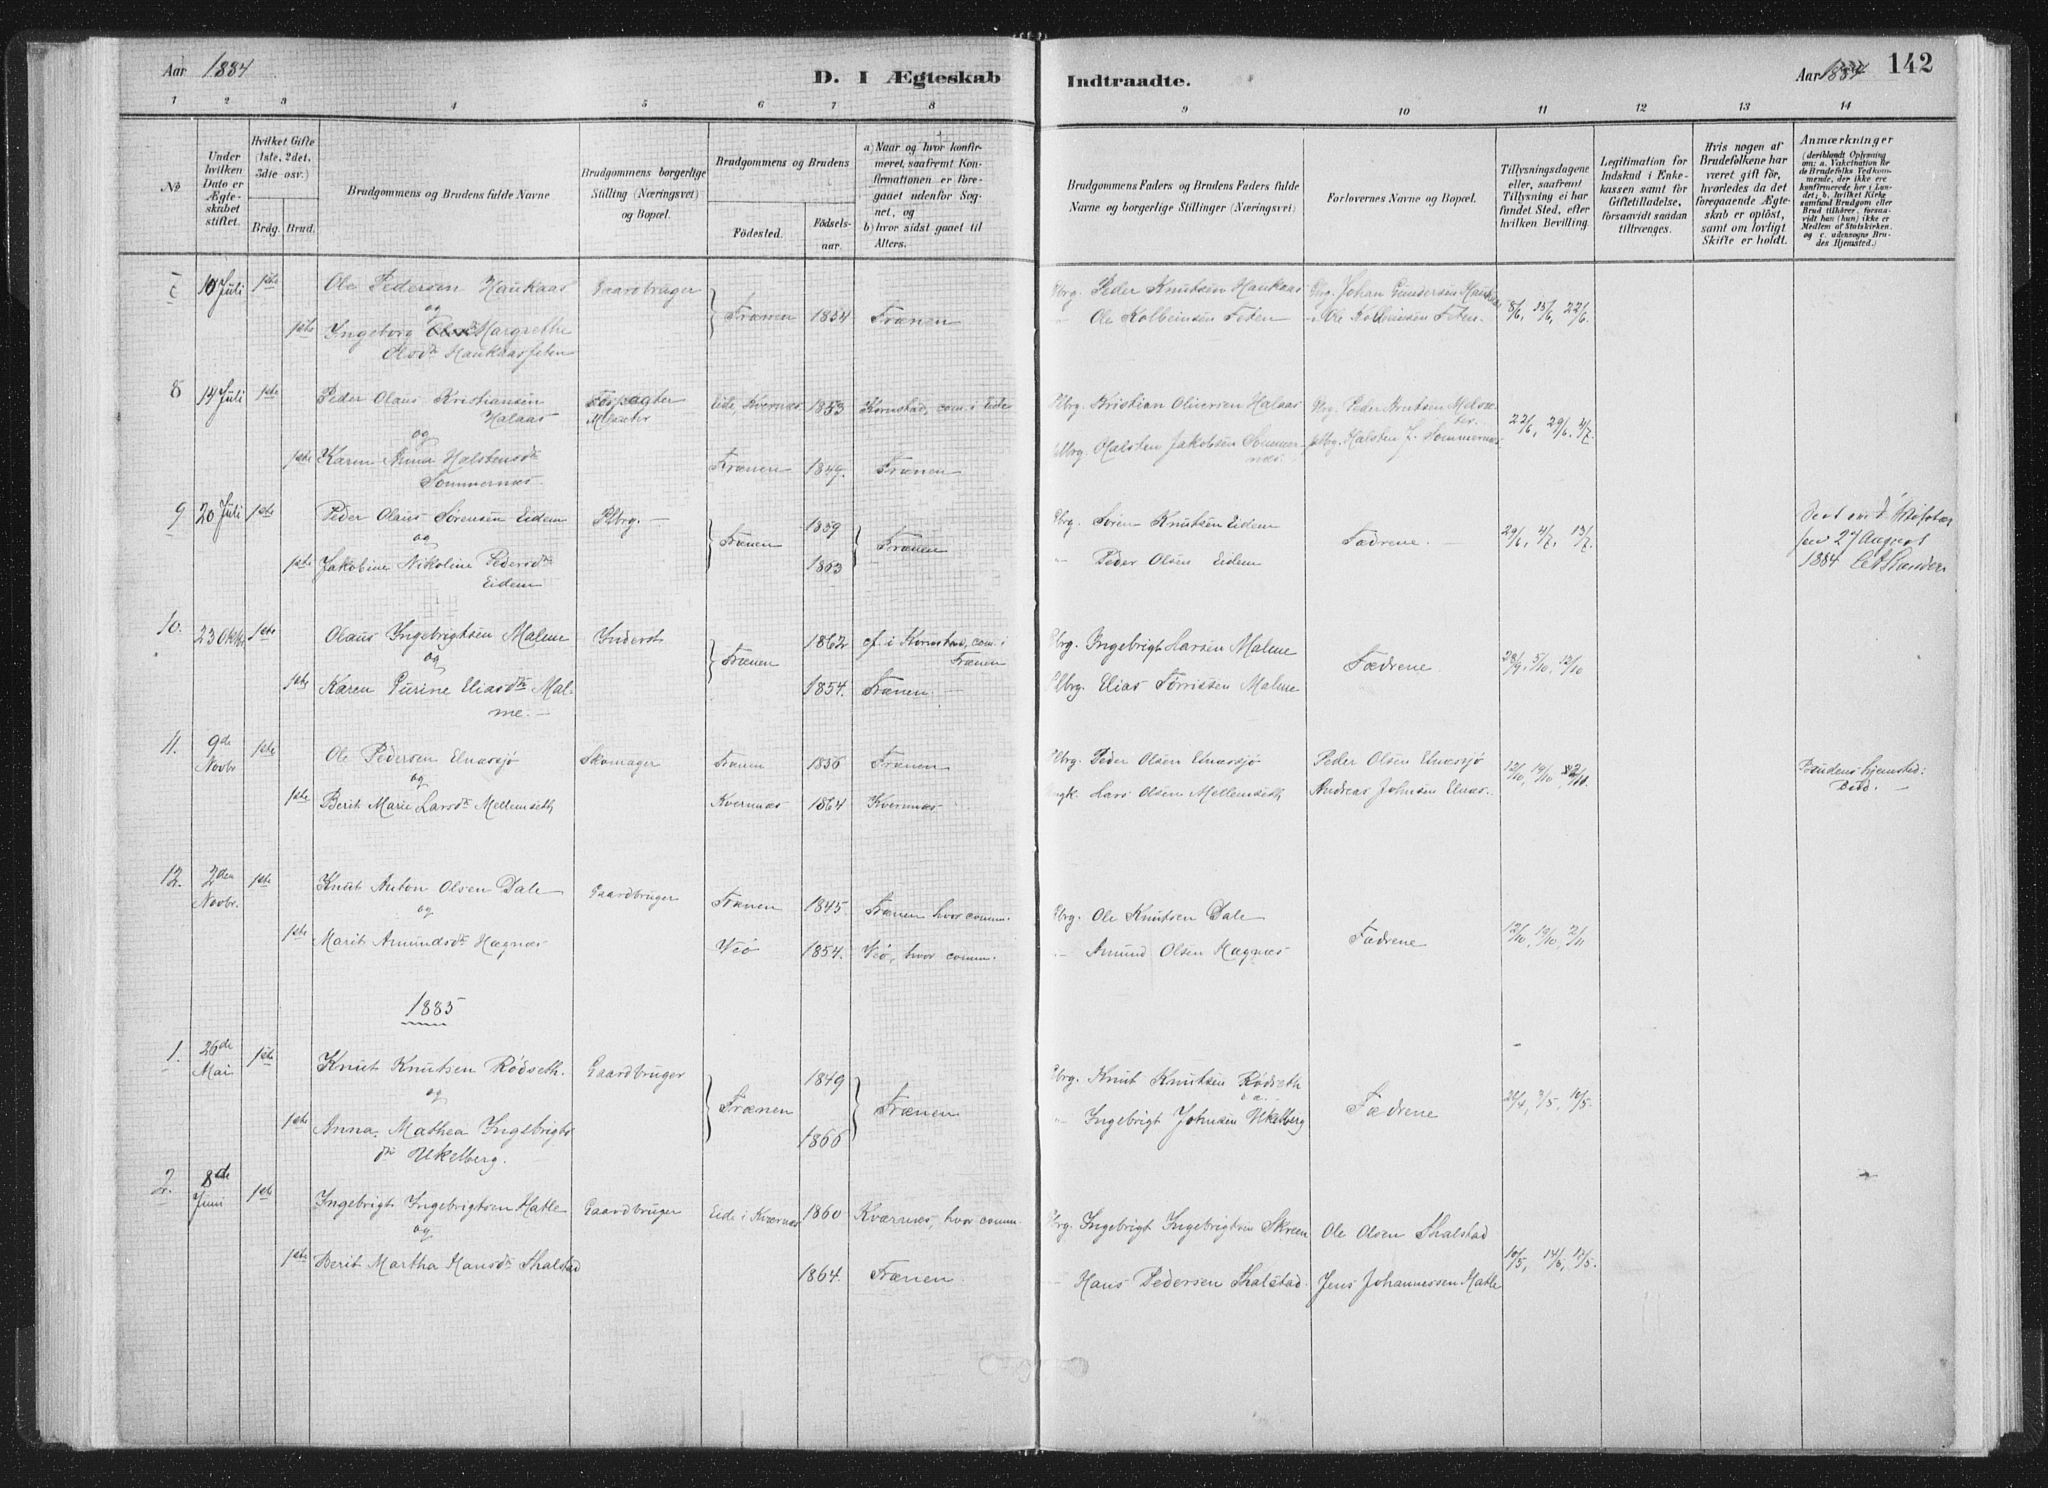 Aar 1884
D. I Ægteskab
Indtraadte.
Aar 1884
142
1 2 3 4 5 6 7 8 9 10 11 12 13 14
No
Under hvilken Dato er Ægteskabet stiftet.
Hvilket Gifte (1ste, 2det, 3die osv.)
Brdg. Brud.
Brudgommens og Brudens fulde Navne
Brudgommens borgerlige Stilling (Næringsvei) og Bopæl.
Brudgommens og Brudens
Fødested.
Fødselsaar.
a) Naar og hvor konfirmeret, saafremt Konfirmationen er foregaaet udenfor Sognet, og
b) hvor sidst gaaet til Alters.
Brudgommens Faders og Brudens Faders fulde Navne og borgerlige Stillinger (Næringsvei)
Forlovernes Navne og Bopæl.
Tillysningsdagene eller, saafremt Tillysning ei har fundet Sted, efter hvilken Bevilling.
Legitimation for Indskud i Enkekassen samt for Giftetilladelse, forsaavidt saadan tiltrænges.
Hvis nogen af Brudefolkene har været gift før, hvorledes da det foregaaende Ægteskab er opløst, samt om lovligt Skifte er holdt.
Anmærkninger
(deriblandt Oplysning om: a. Vakcination for de Brudefolks Vedkommende, der ikke ere konfirmerede her i Landet; b. hvilket Kirkesamfund Brudgom eller Brud tilhører, forsaavidt han (hun) ikke er Medlem af Statskirken, og c. udensogns Brudes Hjemsted.)
7 10 Juli 1ste Ole Pedersen Haukaas Gaardbruger Frænen 1854 Frænen Gbrg. Peder Knutsen Haukaas Gbrg. Johan Gundersen Haukaas 8/6, 15/6, 22/6
og
1ste Ingeborg Margrethe Olsdtr Haukaasfeten " Ole Kolbeinsen Feten " Ole Kolbeinsen Feten.
8 14 Juli 1ste Peder Olaus Kristiansen Halaas Forpagter Eide, Kvernes 1853 Kornstad, com. i Eide Gbrg. Kristian Oliversen Halaas Gbrg. Peder Knutsen 22/6, 29/6, 4/7.
og
1ste Karen Anna Halstensdtr Sommernes. Frænen 1849. Frænen Halsten Jakobsen Sommernæs. Halsten J. Sommernæs
9 20 Juli 1ste Peder Olaus Sørensen Eidem Gbrg. Frænen 1859 Frænen Gbrg. Søren Knutsen Eidem Fædrene. 29/6, 4/7, 13/7
og
1ste Jakobine Nikoline Pedersdtr Eidem 1863 " Peder Olsen Eidem
27 August
1884
10. 23 Oktbr 1ste Olaus Ingebrigtsen Malme Inderst Frænen 1862 cf. i Kornstad, com. i Frænen Gbrg. Ingebrigt Larsen Malme Fædrene. 28/9, 5/10, 12/10
og
1ste Karen Gurine Eliasdtr Malme. 1854. Frænen. Gbrg. Elias Tørrissen Malme
11. 9de Novbr 1ste Ole Pedersen Elnæssjø Skomager Frænen 1856 Frænen Gbrg. Peder Olsen Elnæssjø Peder Olsen Elnæssjø 12/10, 19/10,
og
1ste Berit Marie Larsdtr Mellemseth Kvernæs 1864 Kvernæs Lars Olsen Mellemseth Andreas Johnsen Elnæs.
Brudens Hjemsted: Bod.
12. 2den Novbr. 1ste Knut Anton Olsen Dale Gaardbruger Frænen 1845 Frænen hvor comm. Gbrg. Ole Knutsen Dale Fædrene 12/10, 19/10, 2/11
og
1ste Marit Amundsdtr Hægnæs Veø 1854. Veø, hvor comm. " Amund Olsen Hægnæs
1885
1. 26de Mai 1ste Knut Knutsen Rødseth. Gaardbruger Frænen 1849 Frænen Gbrg. Knut Knutsen Rødseth Fædrene 26/4, 3/5, 10/5.
og
1ste Anna Mathea Ingebrigtsdtr Ukelberg. 1866 " Ingebrigt Johnsen Ukelberg
2. 8de Juni 1ste Ingebrigt Ingebrigtsen Hatle Gaardbruger Eide i Kværnæs 1860 Kværnæs, hvor comm. Gbrg. Ingebrigt Ingebrigtsen Skreen Ole Olsen Thalstad 10/5, 14/5, 17/5.
og
1ste Berit Martha Hansdtr Thalstad 1864. Frænen. Hans Pedersen Thalstad. Jens Johannessen Hatle